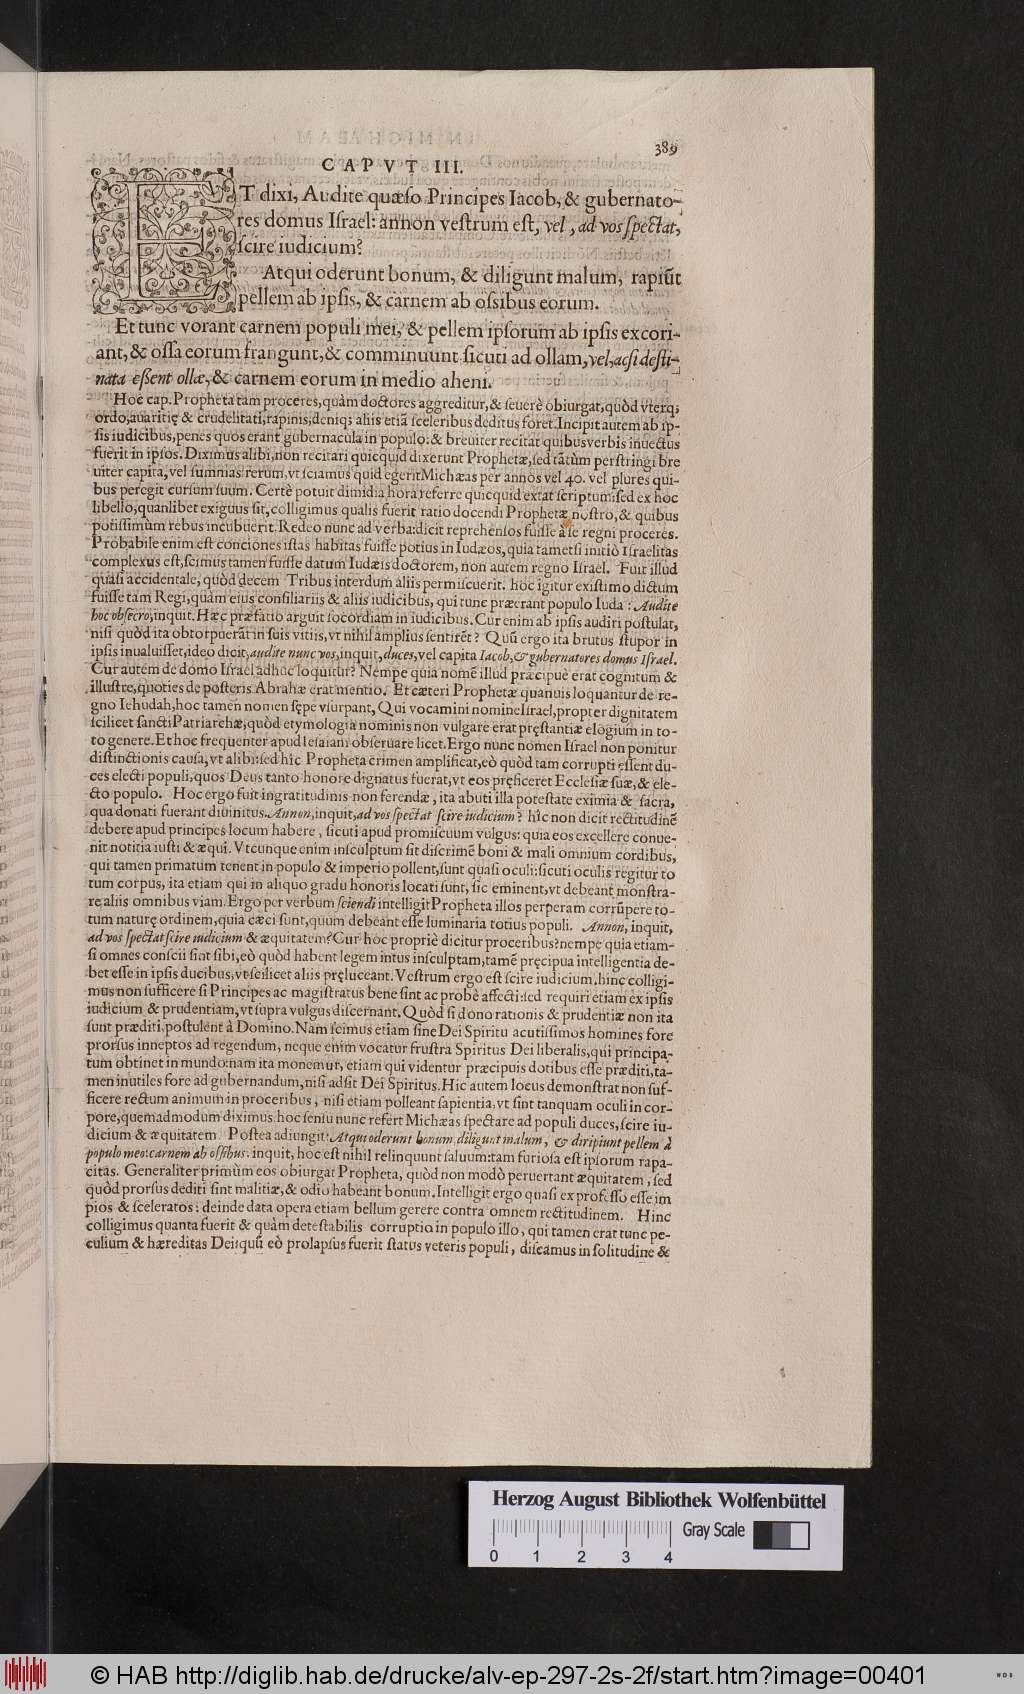 389
CAPVT III.
ET dixi, Audite quæso Principes Iacob, & gubernato-
res domus Iſrael: annon veſtrum eſt, vel, ad vos ſpectat,
ſcire iudicium?
Atqui oderunt bonum, & diligunt malum, rapiũt
pellem ab ipſis, & carnem ab oſsibus eorum.
Et tunc vorant carnem populi mei, & pellem ipſorum ab ipſis excori-
ant, & oſſa eorum frangunt, & comminuunt ſicuti ad ollam, vel, acſi deſti-
nata eßent ollæ, & carnem eorum in medio aheni.
Hoc cap. Propheta tam proceres, quàm doctores aggreditur, & ſeuerè obiurgat, quòd vterq;
ordo, auaritię & crudelitati, rapinis, deniq; aliis etiã ſceleribus deditus foret. Incipit autem ab ip-
ſis iudicibus, penes quos erant gubernacula in populo: & breuiter recitat quibus verbis inuectus
fuerit in ipſos. Diximus alibi, non recitari quicquid dixerunt Prophetæ, ſed tãtùm perſtringi bre
uiter capita, vel ſummas rerum, vt ſciamus quid egerit Michæas per annos vel 40. vel plures qui-
bus peregit curſum ſuum. Certè potuit dimidia hora referre quicquid extat ſcriptum: ſed ex hoc
libello, quanlibet exiguus ſit, colligimus qualis fuerit ratio docendi Prophetæ noſtro, & quibus
potiſſimùm rebus incubuerit. Redeo nunc ad verba: dicit reprehenſos fuiſſe à ſe regni proceres.
Probabile enim eſt conciones iſtas habitas fuiſſe potius in Iudæos, quia tametſi initiò Iſraelitas
complexus eſt, ſcimus tamen fuiſſe datum Iudæis doctorem, non autem regno Iſrael. Fuit illud
quaſi accidentale, quòd decem Tribus interdum aliis permiſcuerit. hoc igitur exiſtimo dictum
fuiſſe tam Regi, quàm eius conſiliariis & aliis iudicibus, qui tunc præerant populo Iuda: Audite
hoc obſecro, inquit. Hæc præfatio arguit ſocordiam in iudicibus. Cur enim ab ipſis audiri poſtulat,
niſi quòd ita obtorpuerãt in ſuis vitiis, vt nihil amplius ſentirẽt? Quũ ergo ita brutus ſtupor in
ipſis inualuiſſet, ideo dicit, audite nunc vos, inquit, duces, vel capita Iacob, & gubernatores domus Iſrael.
Cur autem de domo Iſrael adhuc loquitur? Nempe quia nomẽ illud præcipuè erat cognitum &
illuſtre, quoties de poſteris Abrahæ erat mentio. Et cæteri Prophetæ quanuis loquantur de re-
gno Iehudah, hoc tamen nomen ſępe vſurpant, Qui vocamini nomine Iſrael, propter dignitatem
ſcilicet ſancti Patriarchæ, quòd etymologia nominis non vulgare erat pręſtantiæ elogium in to-
to genere. Et hoc frequenter apud Ieſaiam obſeruare licet. Ergo nunc nomen Iſrael non ponitur
diſtinctionis cauſa, vt alibi: ſed hîc Propheta crimen amplificat, eò quòd tam corrupti eſſent du-
ces electi populi, quos Deus tanto honore dignatus fuerat, vt eos pręficeret Eccleſiæ ſuæ, & ele-
cto populo. Hoc ergo fuit ingratitudinis non ferendæ, ita abuti illa poteſtate eximia & ſacra,
qua donati fuerant diuinitus. Annon, inquit, ad vos ſpectat ſcire iudicium? hîc non dicit rectitudinẽ
debere apud principes locum habere, ſicuti apud promiſcuum vulgus: quia eos excellere conue-
nit notitia iuſti & æqui. Vtcunque enim inſculptum ſit diſcrimẽ boni & mali omnium cordibus,
qui tamen primatum tenent in populo & imperio pollent, ſunt quaſi oculi: ſicuti oculis regitur to
tum corpus, ita etiam qui in aliquo gradu honoris locati ſunt, ſic eminent, vt debeant monſtra-
re aliis omnibus viam. Ergo per verbum ſciendi intelligit Propheta illos perperam corrũpere to-
tum naturę ordinem, quia cæci ſunt, quum debeant eſſe luminaria totius populi. Annon, inquit,
ad vos ſpectat ſcire iudicium & æquitatem? Cur hoc propriè dicitur proceribus? nempe quia etiam-
ſi omnes conſcii ſint ſibi, eò quòd habent legem intus inſculptam, tamẽ pręcipua intelligentia de-
bet eſſe in ipſis ducibus, vt ſcilicet aliis pręluceant. Veſtrum ergo eſt ſcire iudicium. hinc colligi-
mus non ſufficere ſi Principes ac magiſtratus bene ſint ac probè affecti: ſed requiri etiam ex ipſis
iudicium & prudentiam, vt ſupra vulgus diſcernant. Quòd ſi dono rationis & prudentiæ non ita
ſunt præditi, poſtulent à Domino. Nam ſcimus etiam ſine Dei Spiritu acutiſſimos homines fore
prorſus inneptos ad regendum, neque enim vocatur fruſtra Spiritus Dei liberalis, qui principa-
tum obtinet in mundo: nam ita monemur, etiam qui videntur præcipuis dotibus eſſe præditi, ta-
men inutiles fore ad gubernandum, niſi adſit Dei Spiritus. Hic autem locus demonſtrat non ſuf-
ficere rectum animum in proceribus, niſi etiam polleant ſapientia, vt ſint tanquam oculi in cor-
pore, quemadmodum diximus. hoc ſenſu nunc refert Michæas ſpectare ad populi duces, ſcire iu-
dicium & æquitatem. Poſtea adiungit: Atqui oderunt bonum, diligunt malum, & diripiunt pellem à
populo meo: carnem ab oſſibus. inquit, hoc eſt nihil relinquunt ſaluum: tam furioſa eſt ipſorum rapa-
citas. Generaliter primùm eos obiurgat Propheta, quòd non modò peruertant æquitatem, ſed
quòd prorſus dediti ſint malitiæ, & odio habeant bonum. Intelligit ergo quaſi ex profeſſo eſſe im
pios & ſceleratos: deinde data opera etiam bellum gerere contra omnem rectitudinem. Hinc
colligimus quanta fuerit & quàm deteſtabilis corruptio in populo illo, qui tamen erat tunc pe-
culium & hæreditas Dei: quũ eò prolapſus fuerit ſtatus veteris populi, diſcamus in ſolitudine &
Herzog August Bibliothek Wolfenbüttel
Gray Scale
0 1 2 3 4
© HAB http://diglib.hab.de/drucke/alv-ep-297-2s-2f/start.htm?image=00401